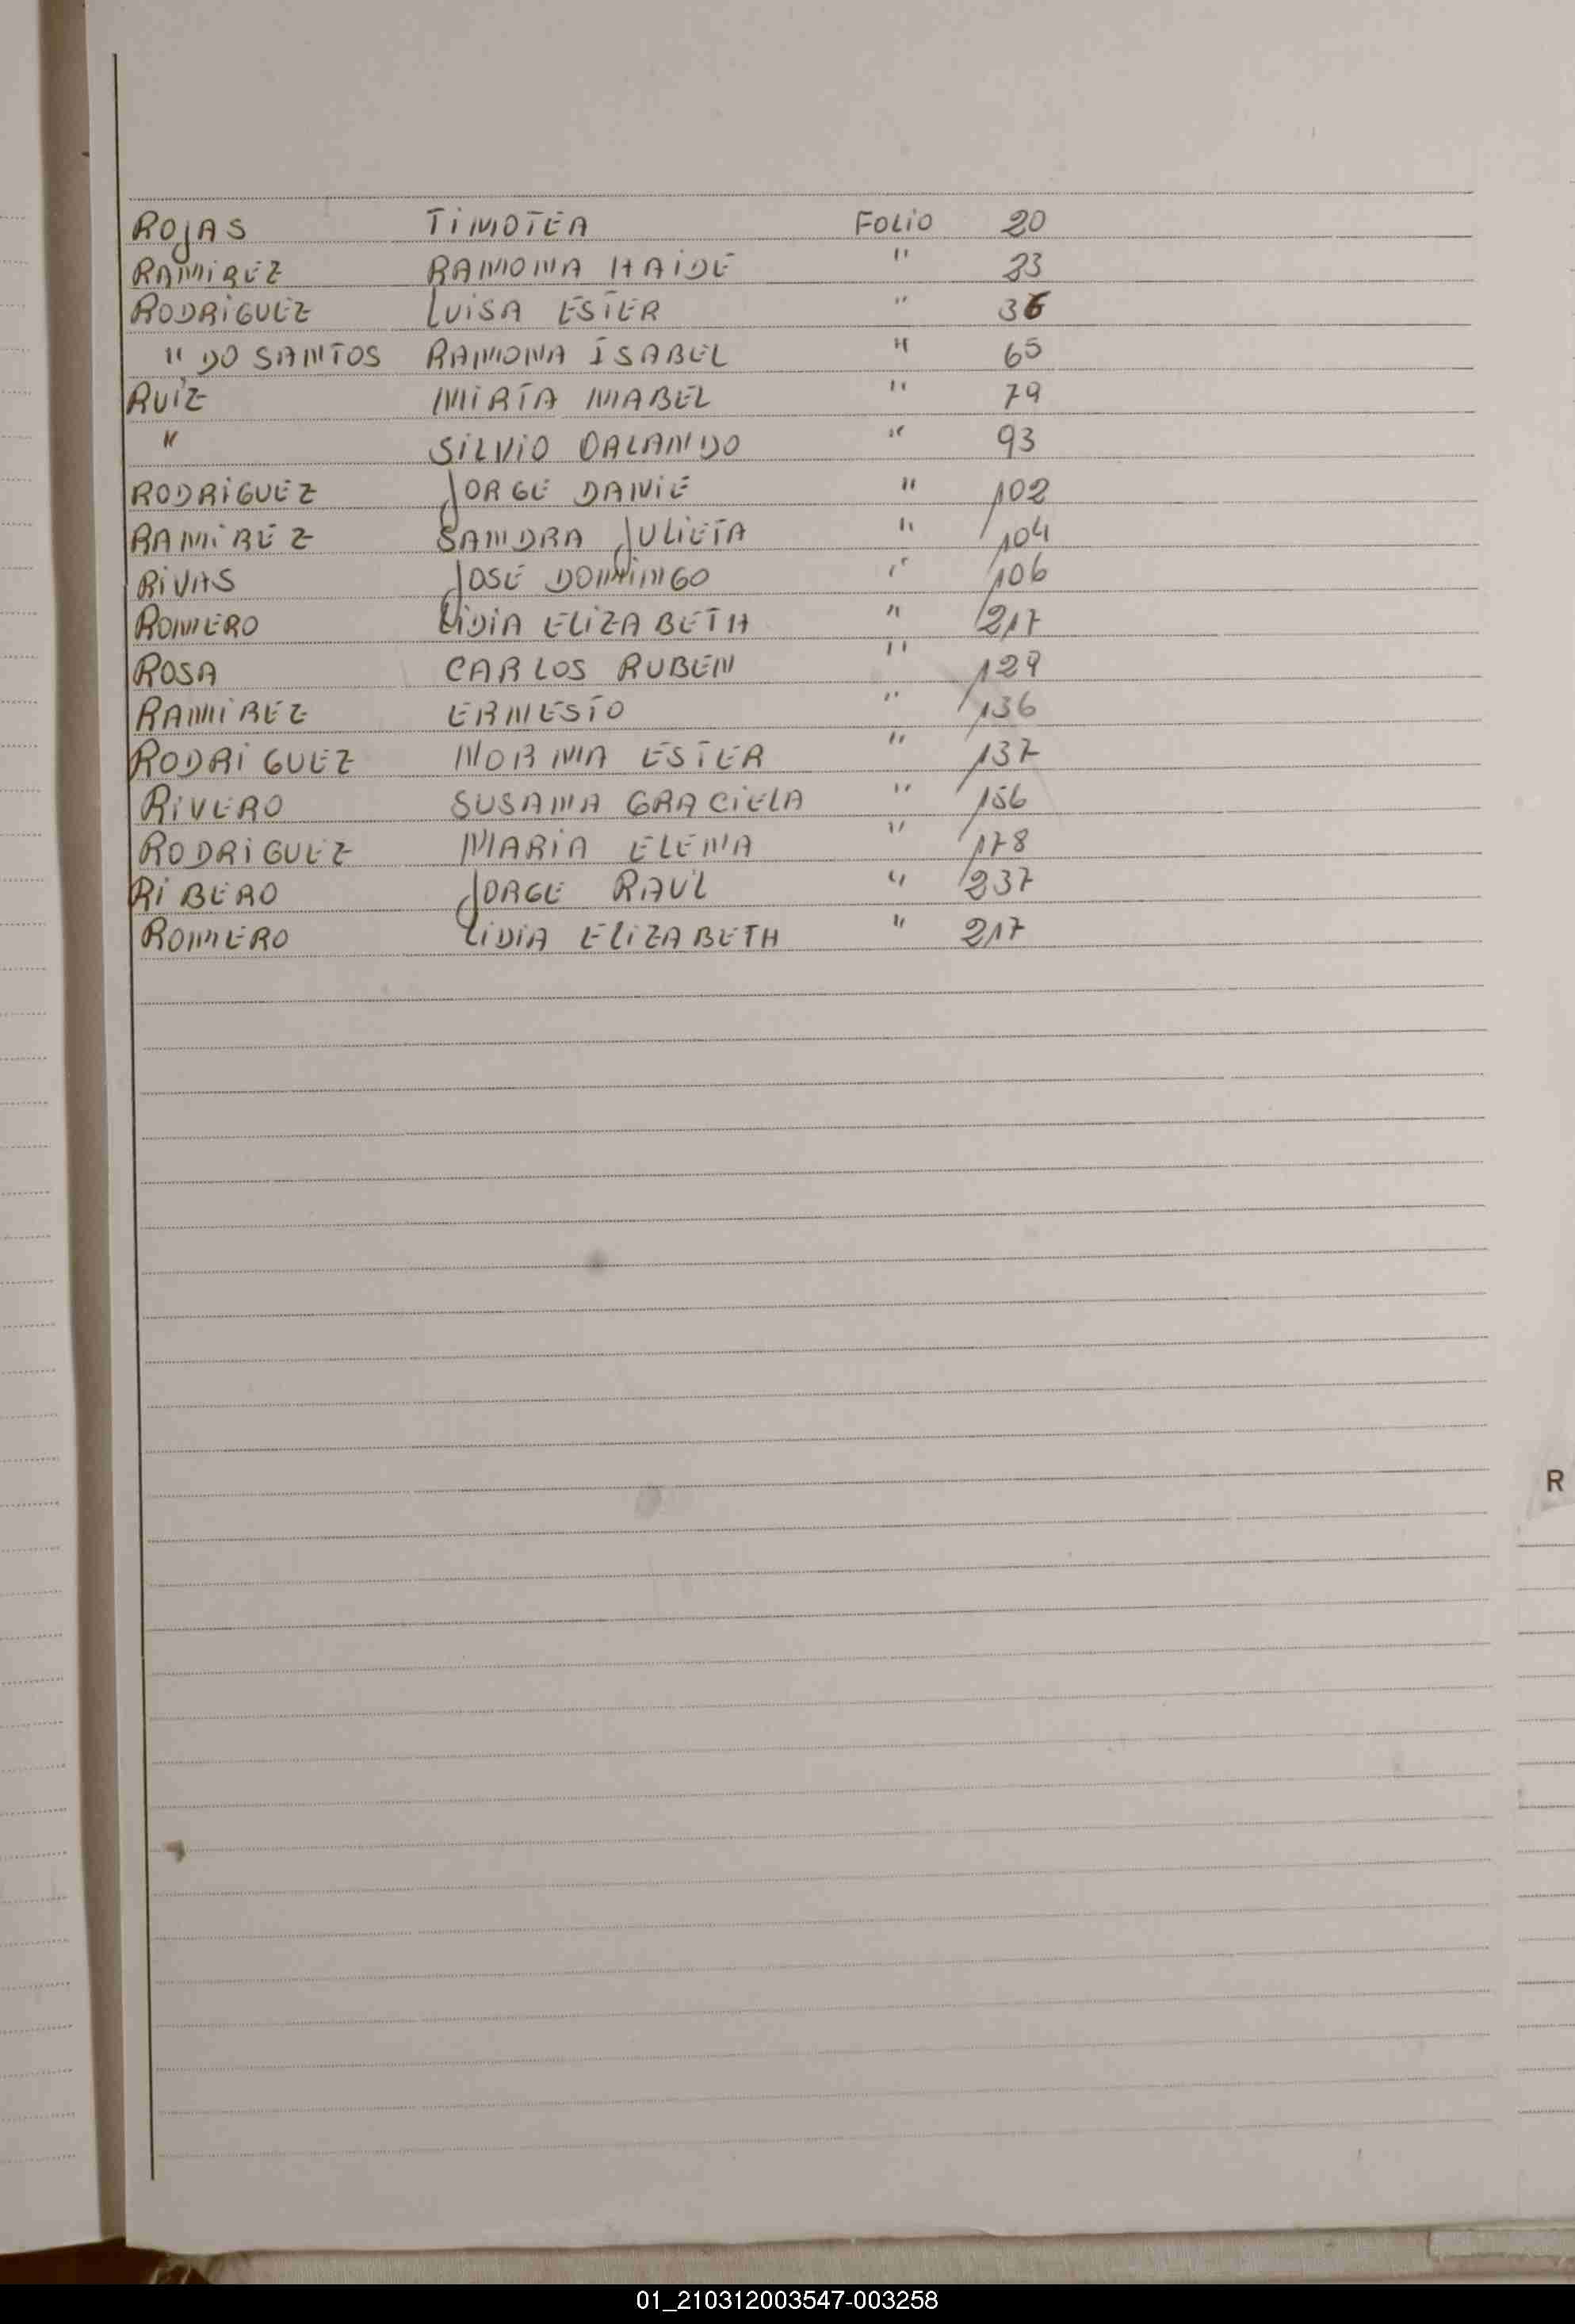 ROJAS TIMOTEA FOLIO 20
RAMIREZ RAMONA HAIDE " 23
RODRIGUEZ LUISA ESTER " 36
" DO SANTOS RAMONA ISABEL " 65
RUIZ MIRTA MABEL " 79
" SILVIO ORLANDO " 93
RODRIGUEZ JORGE DANIE " 102
RAMIREZ SANDRA JULIETA " 104
RIVAS JOSE DOMINGO " 106
ROMERO LIDIA ELIZABETH " 217
ROSA CARLOS RUBEN " 129
RAMIREZ ERNESTO " 136
RODRIGUEZ NORMA ESTER " 137
RIVERO SUSANA GRACIELA " 156
RODRIGUEZ MARIA ELENA " 178
RIBERO JORGE RAUL " 237
ROMERO LIDIA ELIZABETH " 217
R
01_210312003547-003258